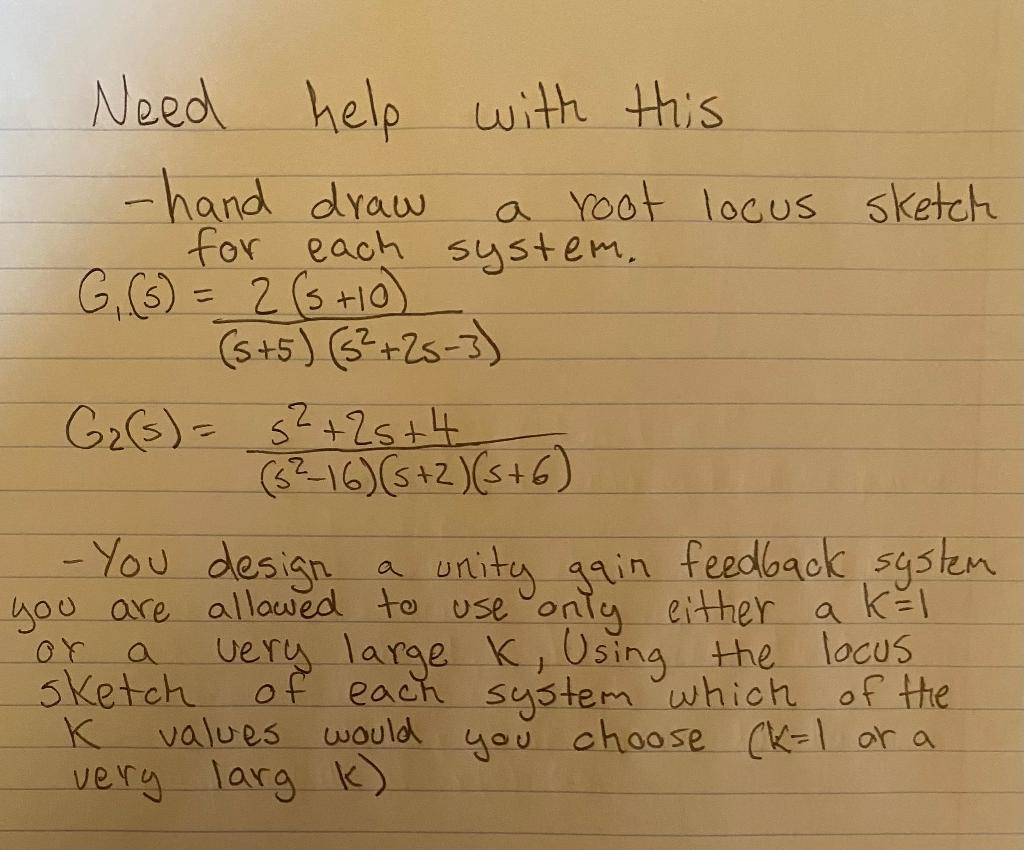 Need help with this
-hand draw a root locus sketch
for each system.
G₁(s) = 2(s+10)
(s+5)(s²+2s-3)
G₂(s) = s²+2s+4
(s²-16)(s+2)(s+6)
-You design a unity gain feedback system
you are allowed to use only either a k=1
or a very large k, Using the locus
sketch of each system which of the
K values would you choose (k=1 or a
very larg k)